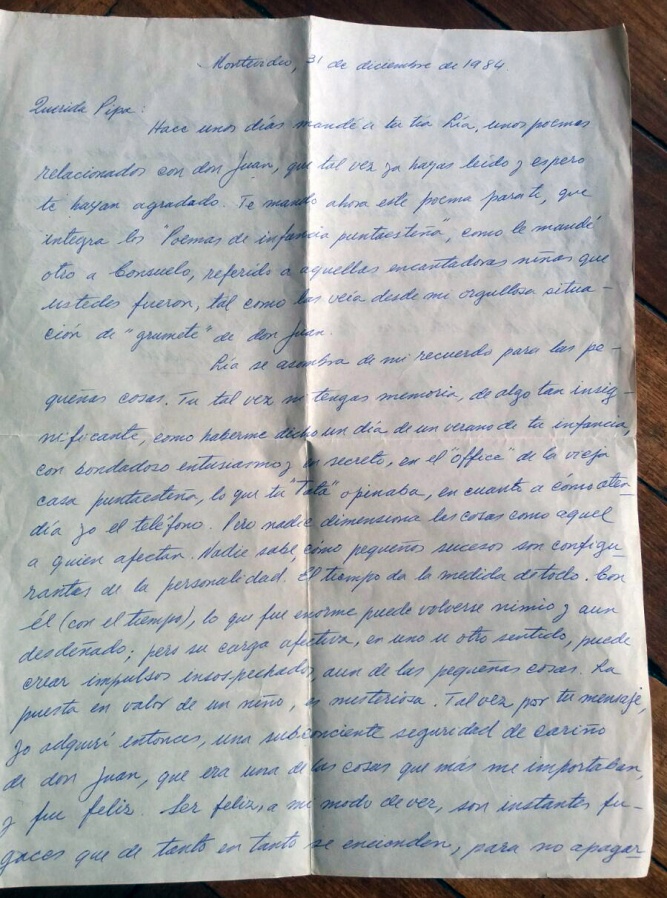 Montevideo, 31 de diciembre de 1984.
Querida Pipa:
Hace unos días mandé a tu tía Lía, unos poemas
relacionados con don Juan, que tal vez ya hayas leído y espero
te hayan agradado. Te mando ahora este poema para ti, que
integra los "Poemas de infancia puntaesteña", como le mandé
otro a Consuelo, referido a aquellas encantadoras niñas que
ustedes fueron, tal como las veía desde mi orgullosa situa-
ción de "grumete" de don Juan.
Lía se asombra de mi recuerdo para las pe-
queñas cosas. Tu tal vez ni tengas memoria, de algo tan insig-
nificante, como haberme dicho un día de un verano de tu infancia,
con bondadoso entusiasmo y en secreto, en el "office" de la vieja
casa puntaesteña, lo que tu "Tata" opinaba, en cuanto a cómo aten-
día yo el teléfono. Pero nadie dimensiona las cosas como aquel
a quien afectan. Nadie sabe, cómo pequeños sucesos son configu
rantes de la personalidad. El tiempo da la medida de todo. Con
él (con el tiempo), lo que fue enorme puede volverse nimio y aun
desdeñado; pero su carga afectiva, en uno u otro sentido, puede
crear impulsos insospechados, aun de las pequeñas cosas. La
puesta en valor de un niño, es misteriosa. Tal vez por tu mensaje,
yo adquirí entonces, una subconciente seguridad de cariño
de don Juan, que era una de las cosas que más me importaban,
y fui feliz. Ser feliz, a mi modo de ver, son instantes fu-
gaces que de tanto en tanto se encienden, para no apagar